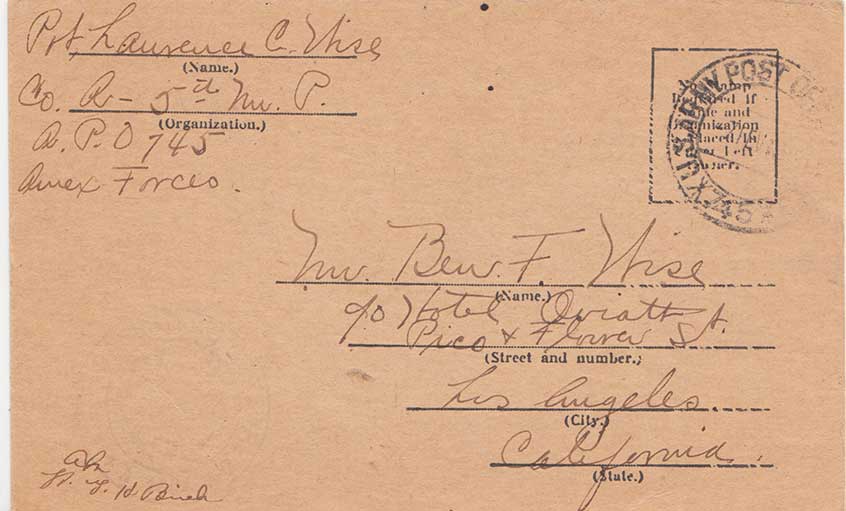 Pvt, Laurence C. Wise
(Name.)
Co. A- 5th M. P.
(Organization.)
A. P. O 745
Amex Forces.
No Stamp
Required if
Name and
Organization
Placed in
Upper Left
Corner.
U.S. ARMY POST
745
Mr. Benj. F. Wise
(Name.)
c/o Hotel Oviatt
Pico & Flower St.
(Street and number.)
Los Angeles.
(City.)
California.
(State.)
H Birch